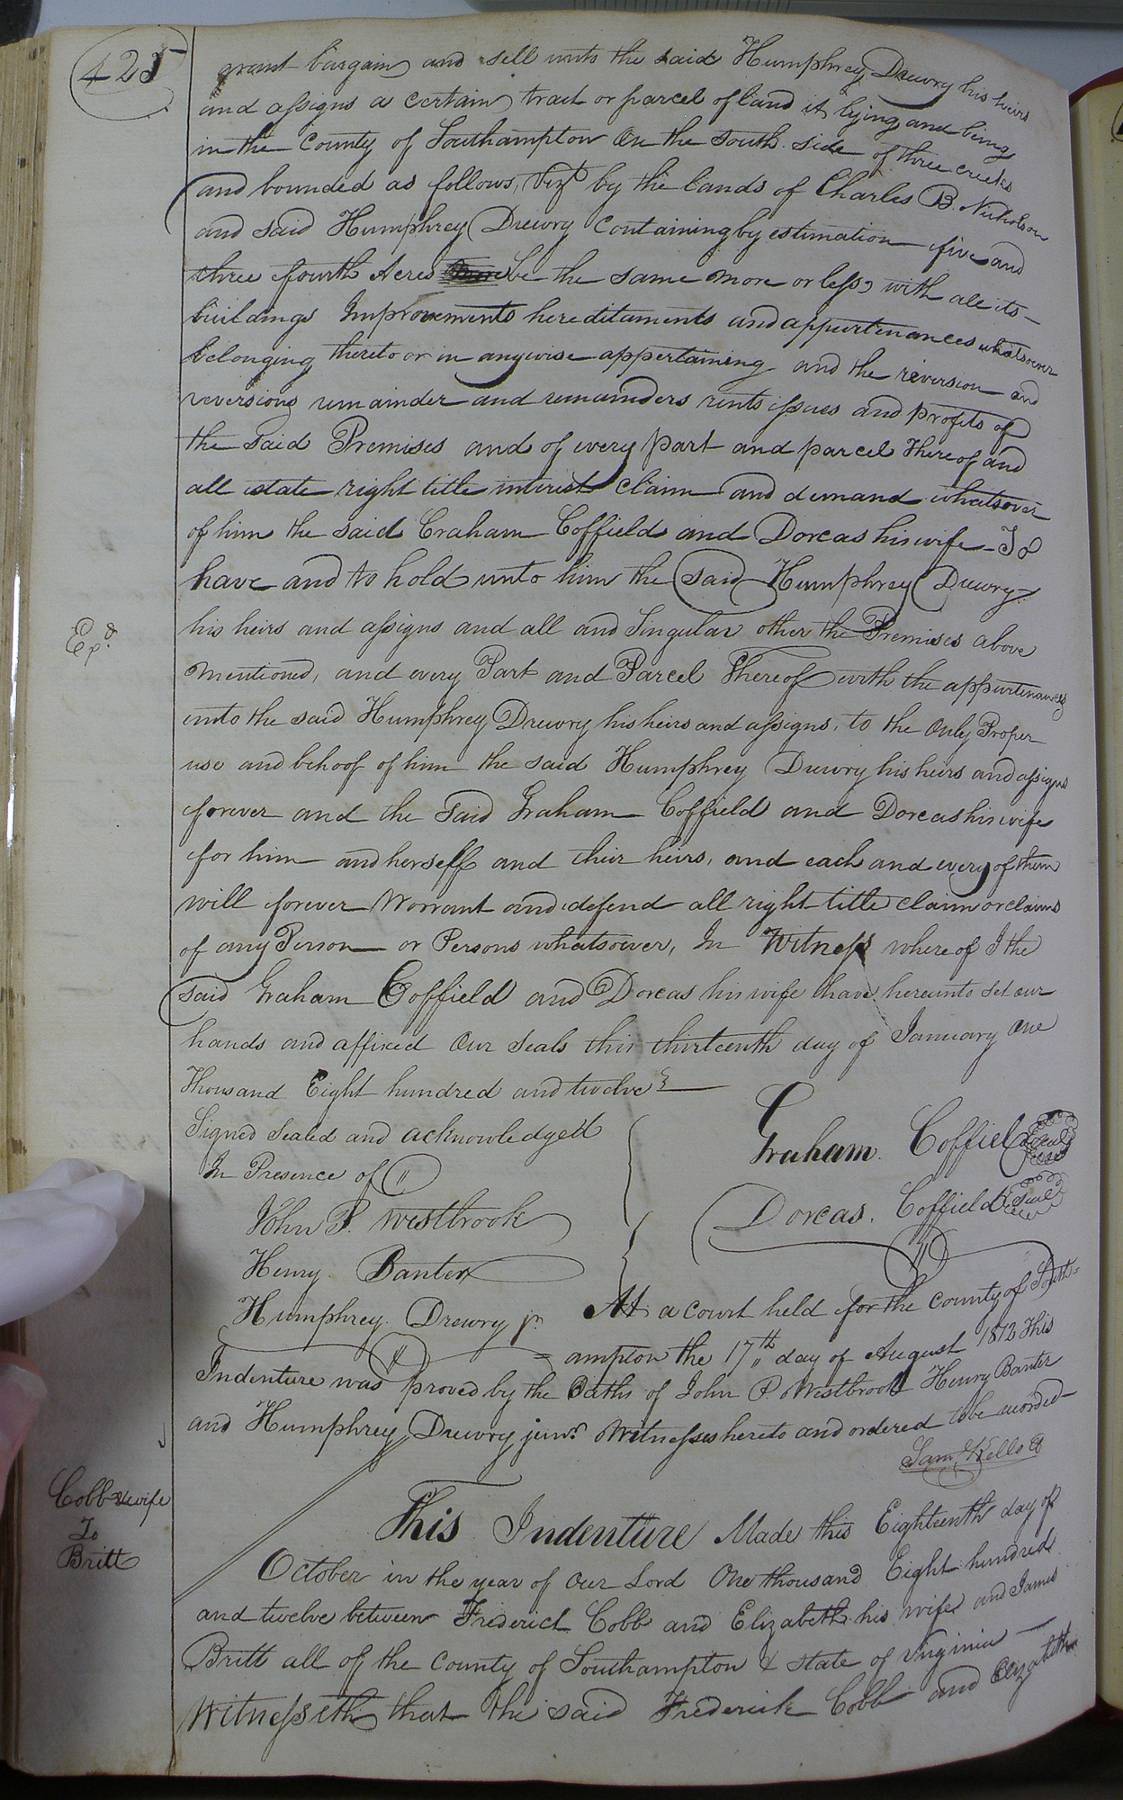 425
grant bargain and sell unto the said Humphrey Drewry his heirs
and assigns a certain tract or parcel of land it lying and being
in the County of Southampton On the South side of three creeks
and bounded as follows, Vizt by the lands of Charles B. Nicholson
and said Humphrey Drewry Containing by estimation five and
three fourth Acres be the same more or less, with all its
buildings Improvements hereditaments and appurtenances whatsoever
belonging thereto or in anywise appertaining and the reversion and
reversions remainder and remainders rents issues and profits of
the said Premises and of every part and parcel thereof and
all estate right title interest claim and demand whatsover
of him the said Graham Coffield and Dorcas his wife - To
have and to hold unto him the said Humphrey Drewry
his heirs and assigns and all and Singular other the Premises above
Exd
mentioned, and every Part and Parcel thereof with the appurtenances
unto the said Humphrey Drewry his heirs and assigns, to the Only Proper
use and behoof of him the said Humphrey Drewry his heirs and assigns
forever and the said Graham Coffield and Dorcas his wife
for him and herself and their heirs, and each and every of them
will forever Warrant and defend all right title claim or claims
of any Person or Persons whatsoever, In Witness where of I the
said Graham Coffield and Dorcas his wife have hereunto set our
hands and affixed Our Seals this thirteenth day of January One
Thousand Eight hundred and twelve
Signed Sealed and acknowledged
In Presence of
Graham Coffield
Seal
John P. Westbrook
Dorcas. Coffield Seal
Henry Banter
Humphrey Drewry jr
At a court held for the county of South=
=ampton the 17th day of August 1812 This
Indenture was proved by the Oaths of John P. Westbrook Henry Banter
and Humphrey Drewry junr Witnesses hereto and ordered to be recorded
Saml Kello
Cobb & wife
To
Britt
This Indenture Made this Eighteenth day of
October in the year of Our Lord One thousand Eight hundred
and twelve between Frederick Cobb and Elizabeth his wife and James
Britt all of the County of Southampton & state of Virginia
Witnesseth that the said Frederick Cobb and Elizabeth